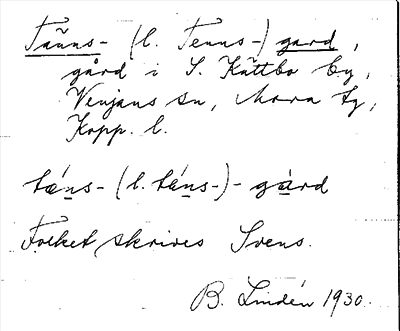 Tänns- (l. Tenns-) gard,
gård i S. Kättbo by,
Venjans sn, Mora tg,
Kopp. l.
tǽns- (l. téns-)- gàrd
Folket skrives Svens.
B. Lindén 1930.